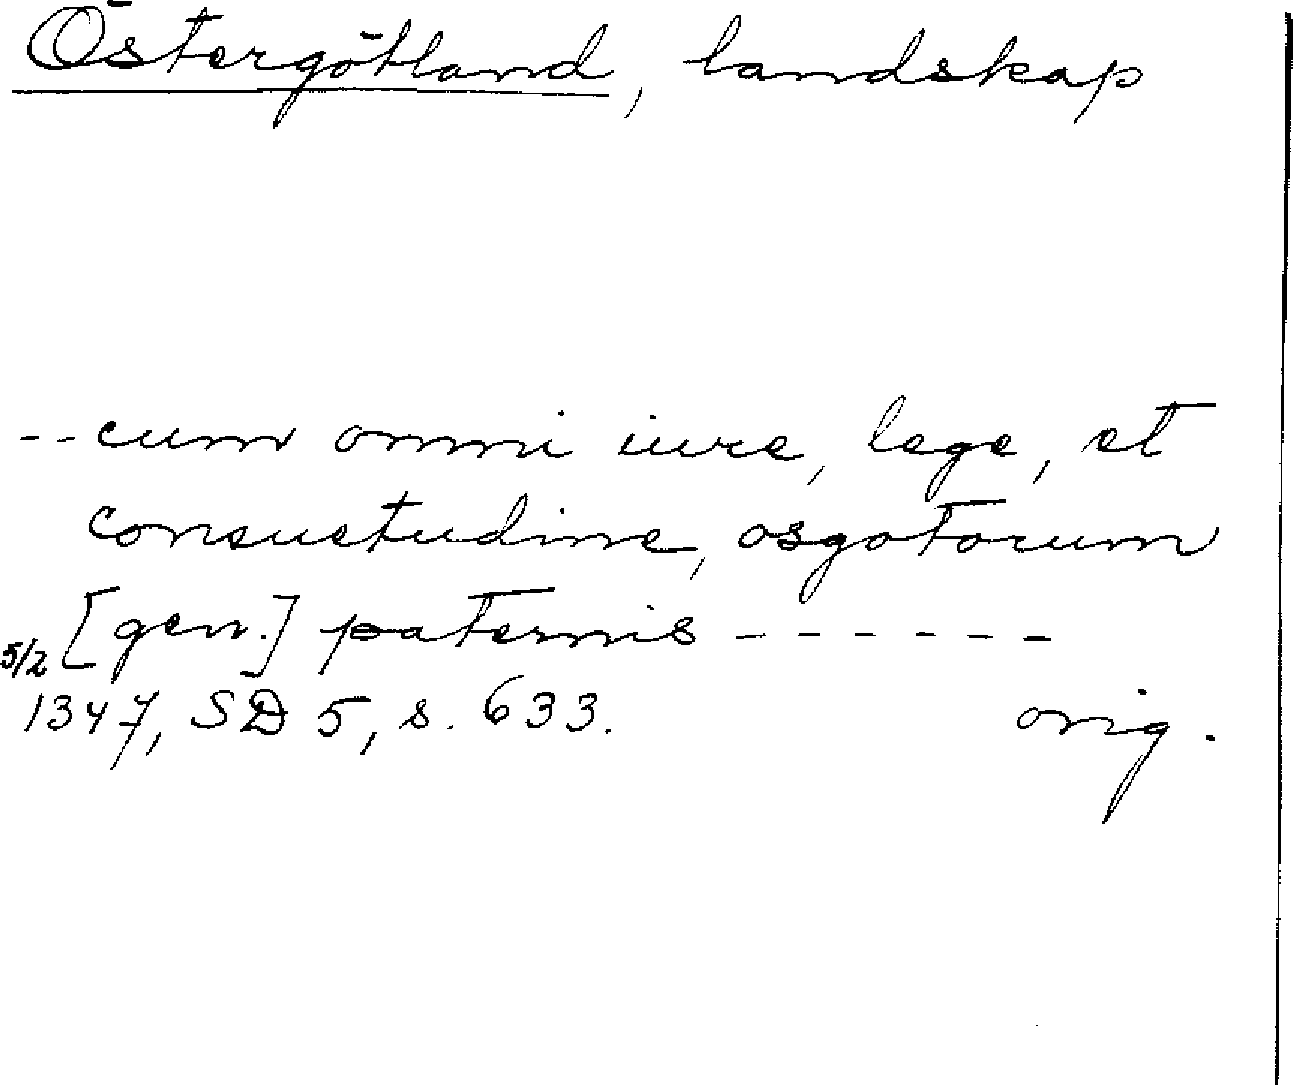 Östergötland, landskap
-- cum omni iure, lege, et
consuetudine, osgotorum
[gen.] paternis - - - - - -
5/2
1347, SD 5, s. 633. orig.